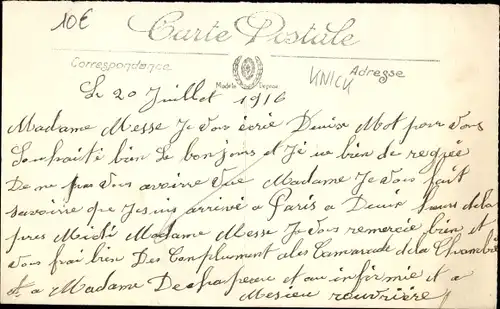 10€
Carte Postale
Correspondance
Adresse
KNICK
Le 20 Juillet 1916
Madame Messe Je vous écrie Deuix Mot pour vous
Souhaité bien Le bonjour et Jé ue bien de regrée
De ne pas vous avoirre vue Madame Je vous fait
savoirre que Je suis arrivé a Paris a Deuix heurs de la
pres Meidi Madame Messe Je vous remercie bien et
vous frai bien Des Conpluiment a les Camarade de la Chambre
et a Madame Dechapeau et au infirmie et a
Mesieu rouvrière